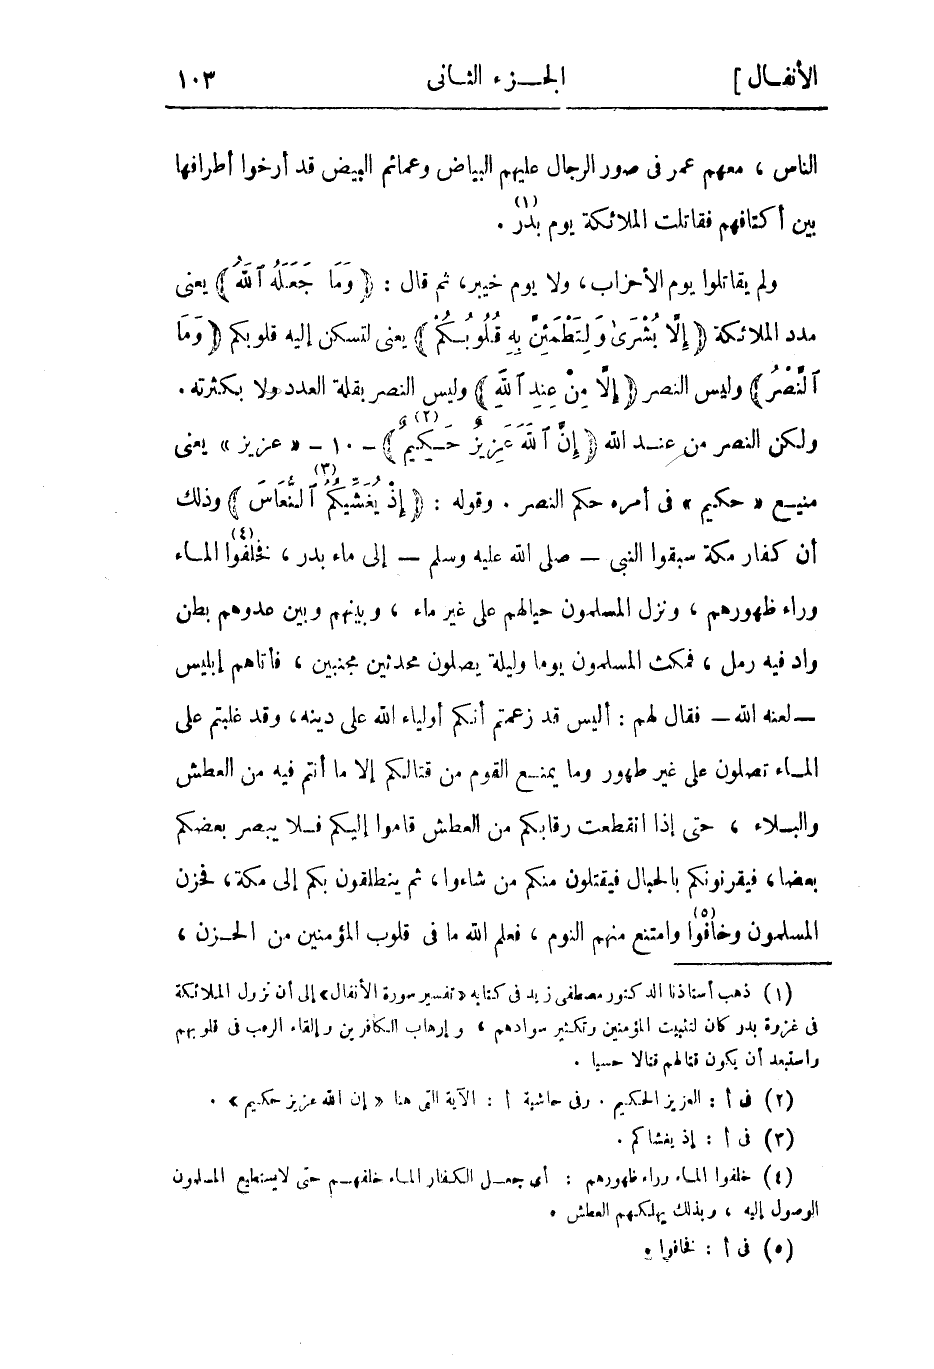 الأنفال ] الجزء الثانى ١٠٣
الناس ، معهم عمر فى صور الرجال عليهم البياض وعمائم البيض قد أرخوا أطرافها
بين أكتافهم فقاتلت الملائكة يوم بدر (١) .
ولم يقاتلوا يوم الأحزاب ، ولا يوم خيبر ، ثم قال : ﴿ وَمَا جَعَلَهُ ٱللَّهُ ﴾ يعنى
مدد الملائكة ﴿ إِلَّا بُشْرَىٰ وَلِتَطْمَئِنَّ بِهِ قُلُوبُكُمْ ﴾ يعنى لتسكن إليه قلوبكم ﴿ وَمَا
ٱلنَّصْرُ ﴾ وليس النصر ﴿ إِلَّا مِنْ عِندِ ٱللَّهِ ﴾ وليس النصر بقلة العدد ولا بكثرته .
ولكن النصر من عند الله ﴿ إِنَّ ٱللَّهَ عَزِيزٌ حَكِيمٌ (٢) ﴾ - ١٠ - « عزيز » يعنى
منيع « حكيم » فى أمره حكم النصر . وقوله : ﴿ إِذْ يُغَشِّيكُمُ (٣) ٱلنُّعَاسَ ﴾ وذلك
أن كفار مكة سبقوا النبى — صلى الله عليه وسلم — إلى ماء بدر ، فخلفوا (٤) الماء
وراء ظهورهم ، ونزل المسلمون حيالهم على غير ماء ، وبينهم وبين عدوهم بطن
واد فيه رمل ، فمكث المسلمون يوما وليلة يصلون محدثين مجنبين ، فأتاهم إبليس
— لعنه الله — فقال لهم : أليس قد زعمتم أنكم أولياء الله على دينه ، وقد غلبتم على
الماء تصلون على غير طهور وما يمنع القوم من قتالكم إلا ما أنتم فيه من العطش
والبلاء ، حتى إذا انقطعت رقابكم من العطش قاموا إليكم فلا يبصر بعضكم
بعضا ، فيقرنونكم بالحبال فيقتلون منكم من شاءوا ، ثم ينطلقون بكم إلى مكة ، فحزن
المسلمون وخافوا (٥) وامتنع منهم النوم ، فعلم الله ما فى قلوب المؤمنين من الحزن ،
(١) ذهب أستاذنا الدكتور مصطفى زيد فى كتابه « تفسير سورة الأنفال » إلى أن نزول الملائكة
فى غزوة بدر كان لتثبيت المؤمنين وتكثير سوادهم ، وإرهاب الكافرين وإلقاء الرعب فى قلوبهم
واستبعد أن يكون قتالهم قتالا حسيا .
(٢) فى أ : العزيز الحكيم . وفى حاشية أ : الآية التى هنا « إن الله عزيز حكيم » .
(٣) فى أ : إذ يغشاكم .
(٤) خلفوا الماء وراء ظهورهم : أى جعل الكفار الماء خلفهم حتى لا يستطيع المسلمون
الوصول إليه ، وبذلك يهلكهم العطش .
(٥) فى أ : فخافوا .